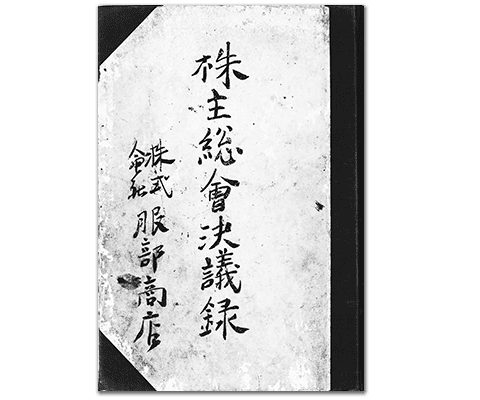 株主総會決議録
株式會社服部商店